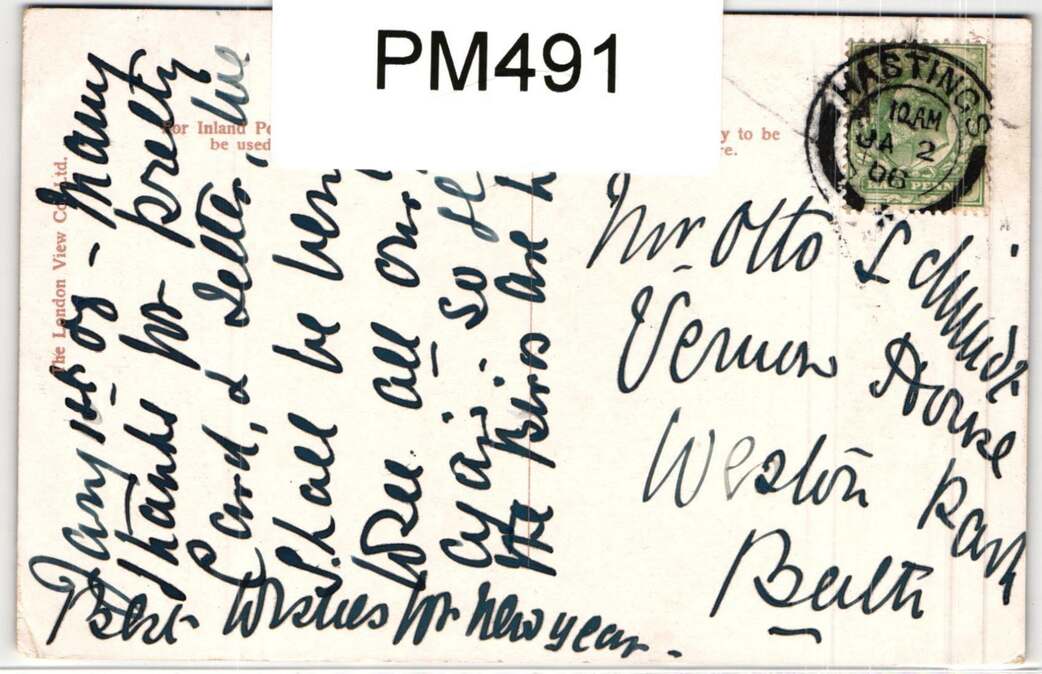 PM491
For Inland Po
be used
y to be
re.
The London View Co. Ltd.
HASTINGS
10 AM
JA 2
06
HALF PENNY
Jany 1st 06 - Many
thanks for pretty
Card, & letter,
Shall be ver
to see all
again so
the Birds are
Best Wishes for New year.
Mr Otto Schmidt
Vernon House
Weston Park
Bath